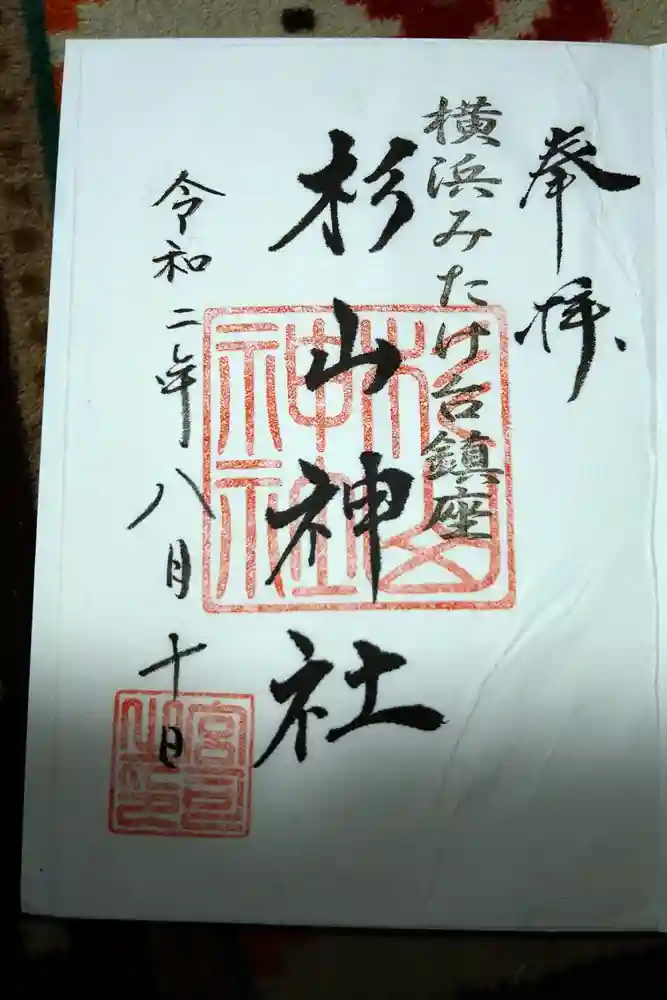 奉拝
横浜みたけ台鎮座
杉山神社
令和二年八月十日
杉山神社
宮司之印